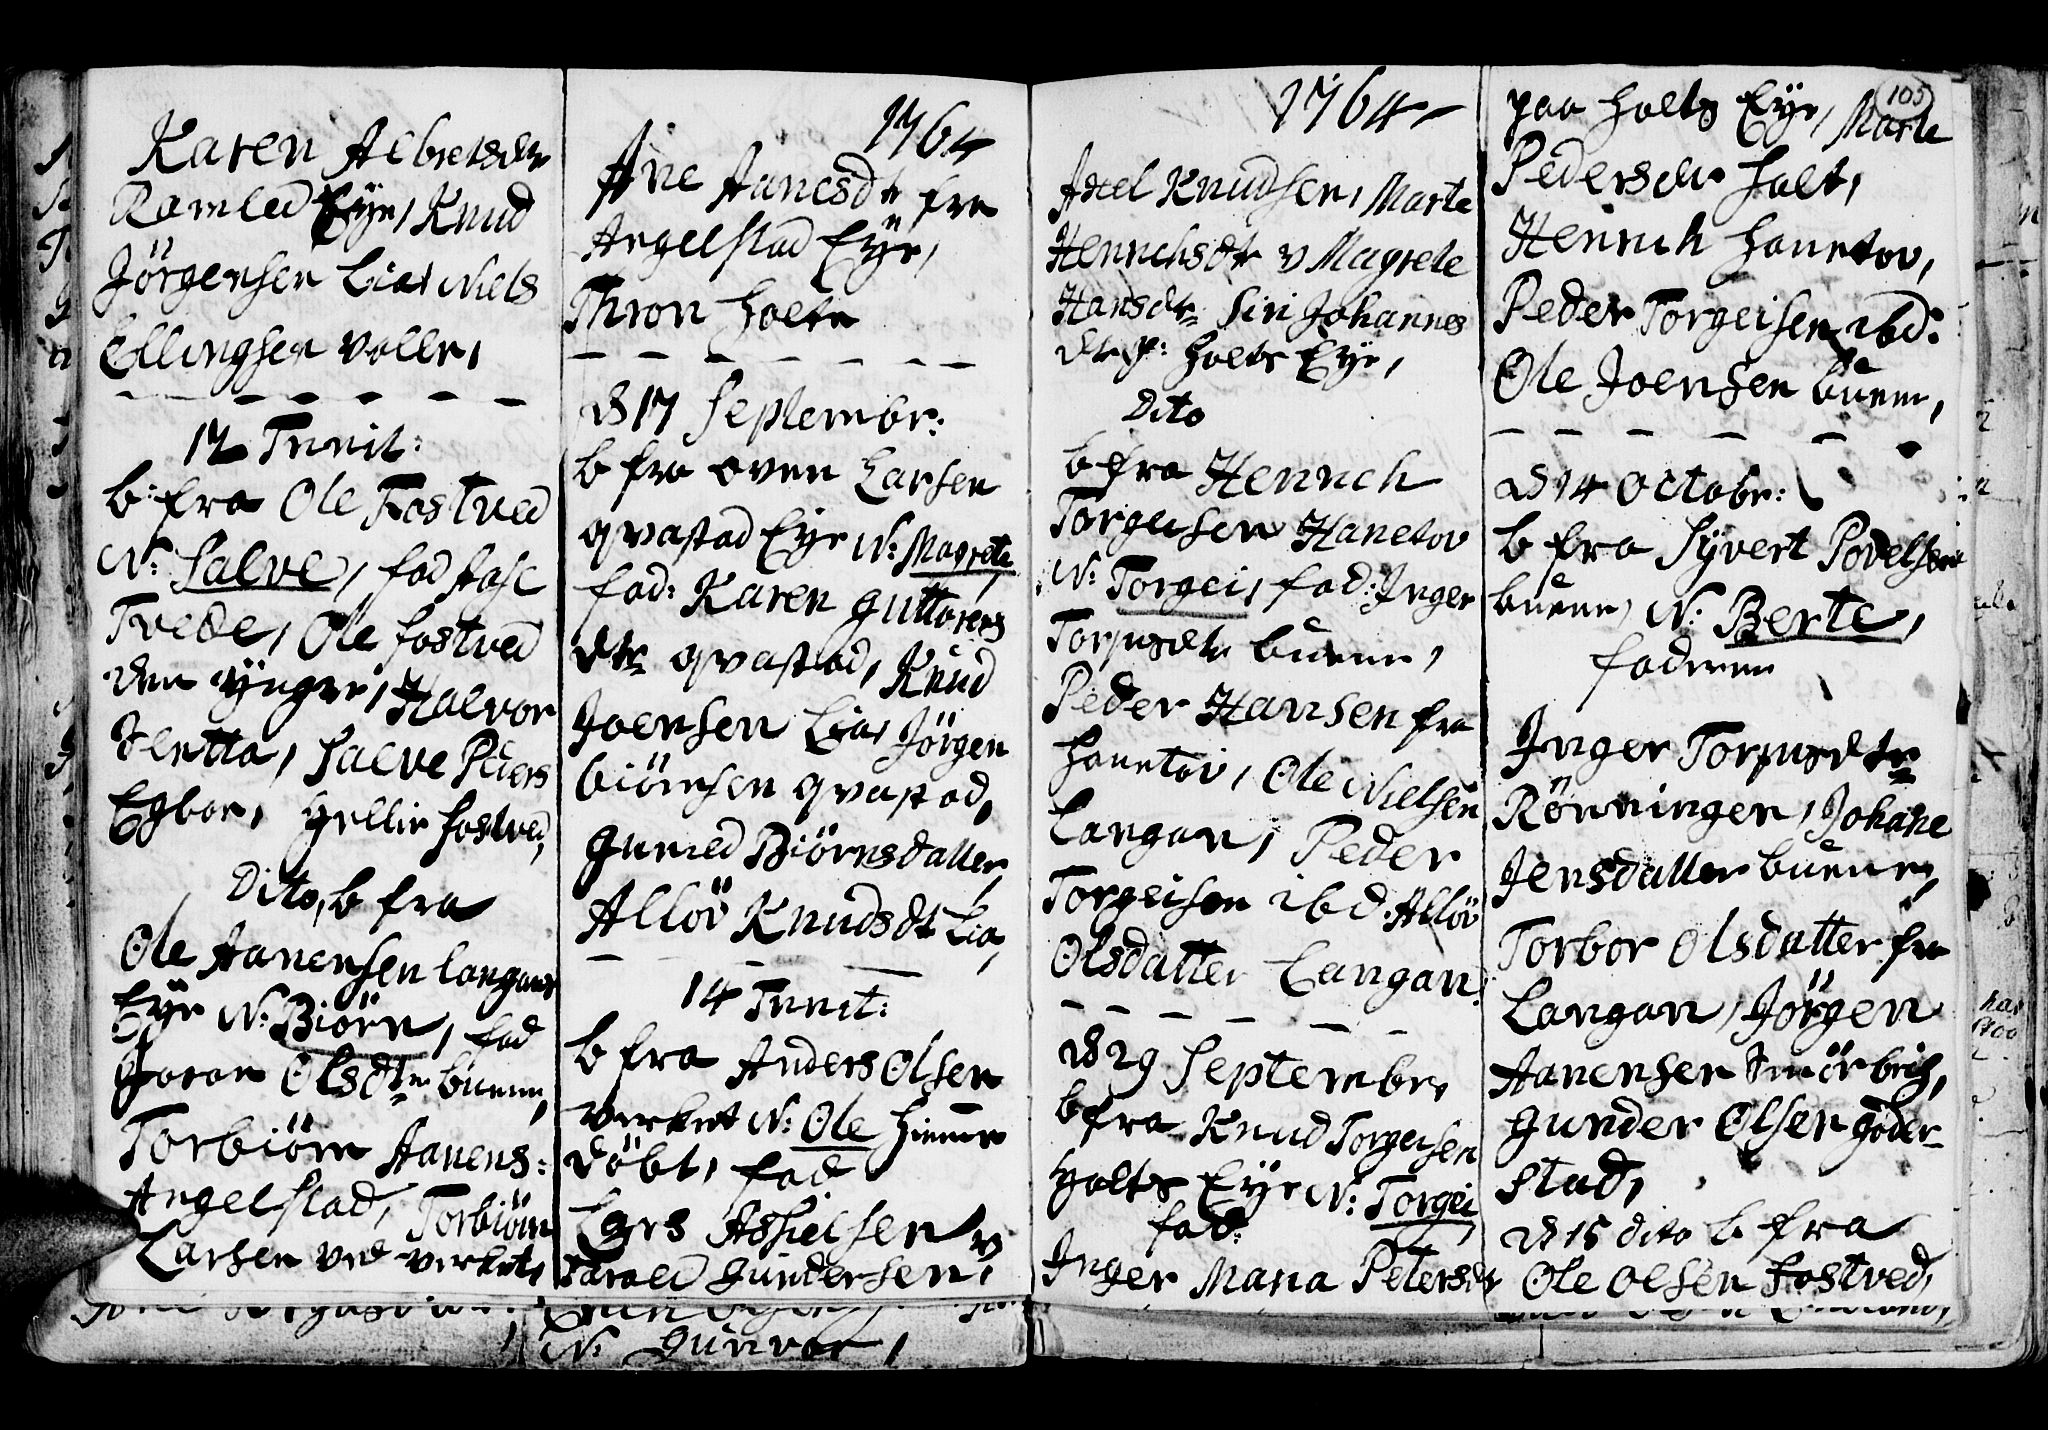 Karen Albretsdtr
Ramled Eÿe, Knud
Jörgensen Lia, Niels
Ellingsen Volle,
12 Trinit:
b: fra Ole Fostved
N: Salve, fad Aase
Tvede, Ole Fostved
den ÿngre, Halvor
Salve Peders
Egbor, Fostved,
Dito, b fra
Ole Aanensen Langans
Eÿe N: Biörn, fad
Joran Olsdtr
Torbiörn Aanens:
Angelstad, Torbiörn
Larsen ved verket,
1764
Ane Aanesdtr fra
Angelstad Eÿe,
Thron Holte
D 17 Septembr:
b fra Oven Larsen
qvastad Eÿe N: Magrete,
fad: Karen Guttorms
dtr qvastad, Knud
Joensen Lia, Jörgen
Biörnsen qvastad,
Gunild Biörnsdatter,
Allöv Knudsdt Lia,
14 Trinit:
b fra Anders Olsen
verket N: Ole hiemme
döbt, fad
Lars Aslielsen
Tarald Gundersen,
N: Gunvor,
1764
Axel Knudsen, Marte
Henrichsdtr v Magrete
Hansdtr Siri Johannes
dtr p: Holts Eÿe,
Dito
b fra Henrich
Torgeisen Hanetov
N: Torgei, fad: Inger
Peder Hansen fra
Hanetov, Ole Nielsen
Langan, Peder
Torgeisen ibd. Allöv
Olsdatter Langan.
D 29 Septembr,
b fra Knud Torgeisen
Holts Eÿe N: Torgei,
fad:
Inger Maria Petersdtr
105
paa Holts Eÿe, Marte
Pedersdtr Holt,
Henrich Hanetov,
Peder Torgeisen ibd:
Ole Joensen
D 14 Octobr:
b fra Sÿvert Povelsen
N: Berte,
fadrene
Inger
Rönningen, Johane
Jensdatter
Torbor Olsdatter fra
Langan, Jörgen
Aanensen
Gunder Olsen Goder-
stad,
D 15 dito b fra
Ole Olsen Fostved,